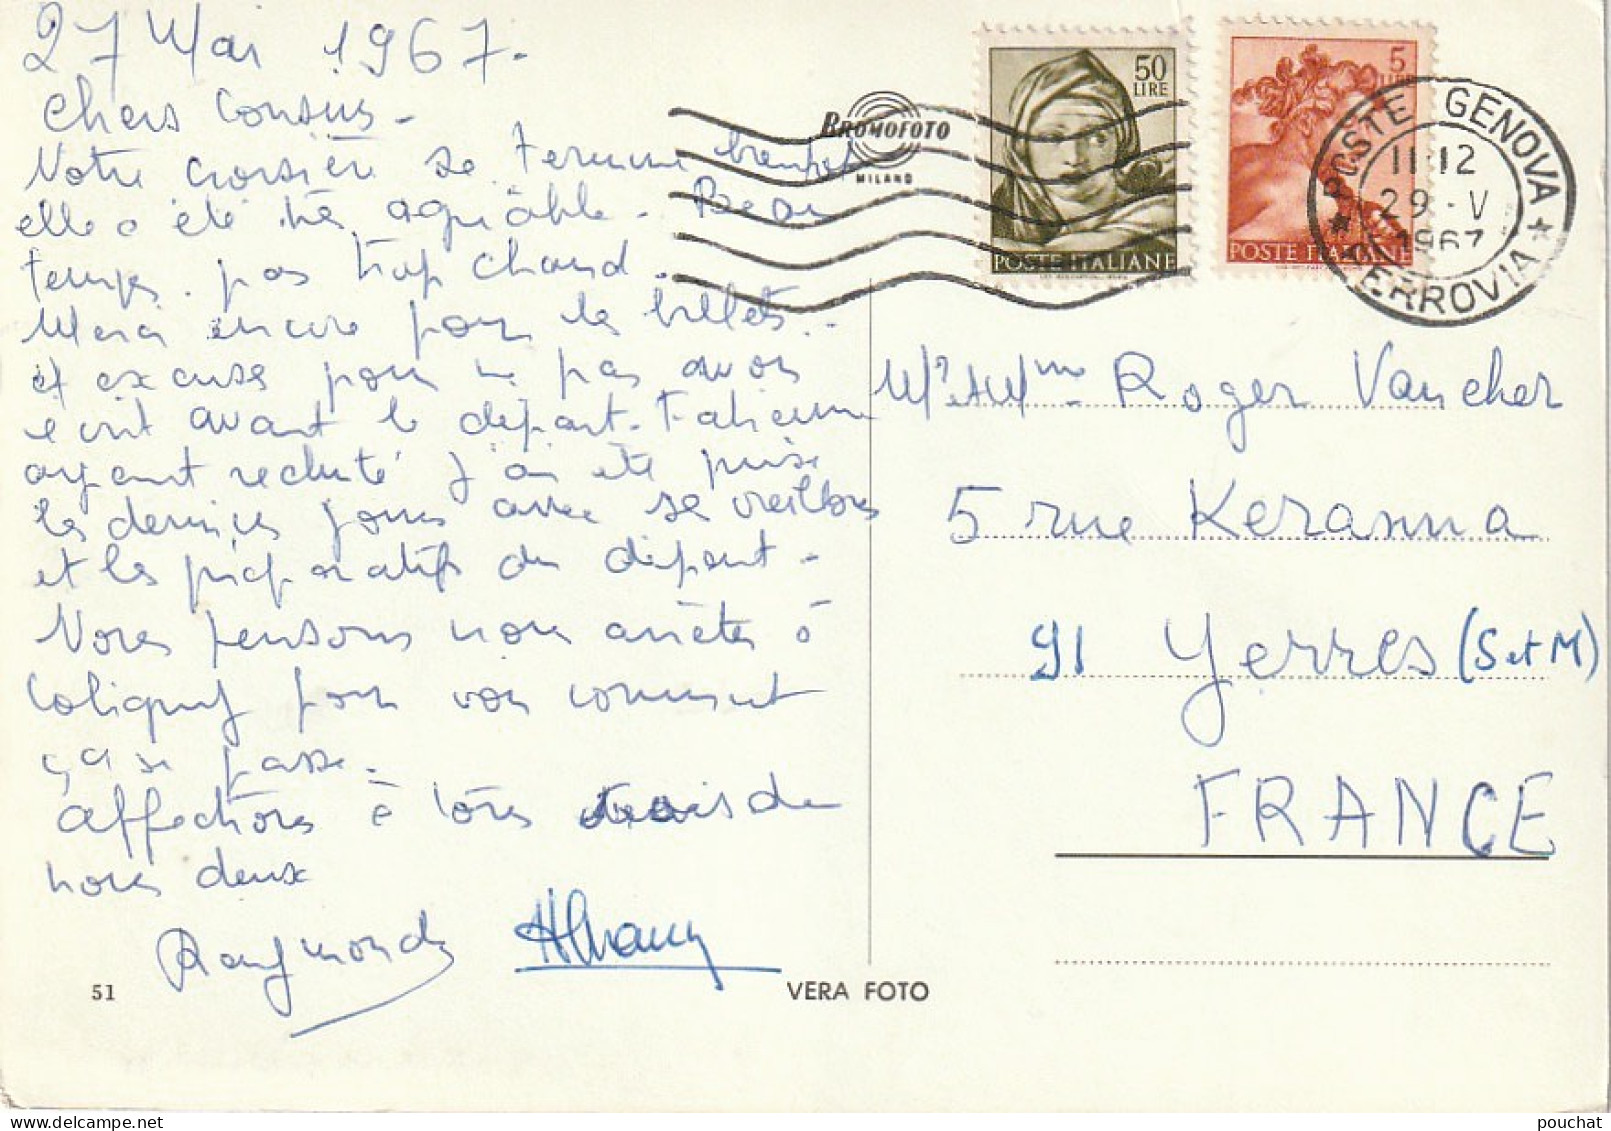 27 Mai 1967.
Chers Cousins -
Notre croisière se termine
elle a été très agréable. Beau
temps. pas trop chaud.
Merci encore pour les billets.
et excuse pour ne pas avoir
écrit avant le départ.
ayant rechuté j'ai été prise
les derniers jours avec
et les préparatifs du départ -
Nous pensons nous arrêter à
Coligny pour voir comment
ça se passe.
affections à tous de
nous deux
Raymonde
51
BROMOFOTO
MILANO
VERA FOTO
50
LIRE
POSTE ITALIANE
5
LIRE
POSTE ITALIANE
POSTE GENOVA
11-12
29 · V
1967
FERROVIA
Mr et Mme Roger Vaucher
5 rue Keranna
91 Yerres (S et M)
FRANCE
pouchat